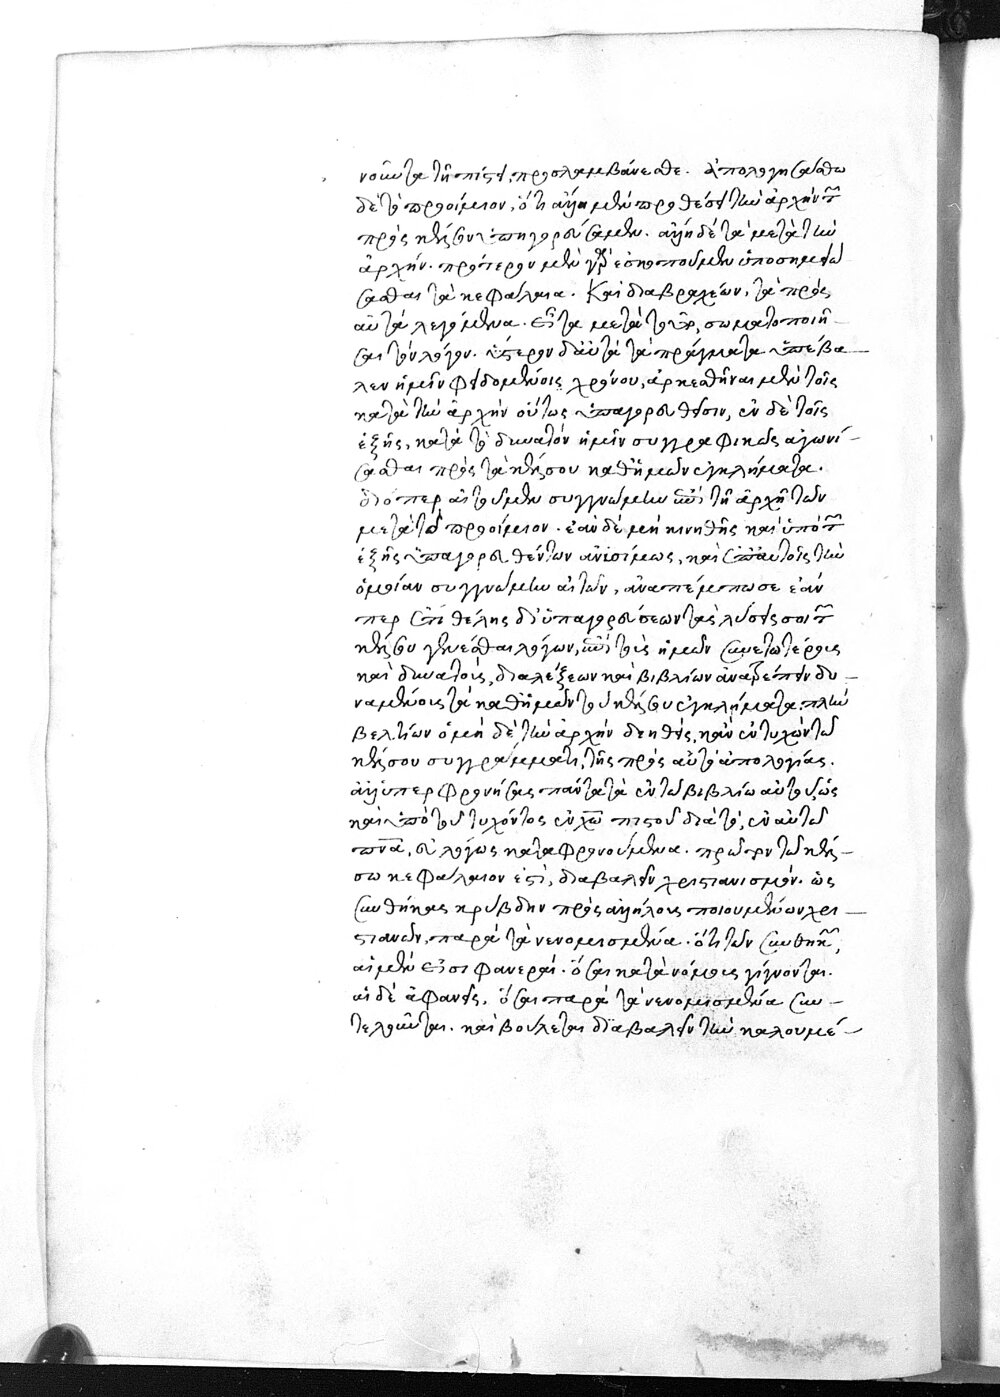 νοῦντα τῇ πίστει, προσλαμβάνεσθε. ἀπολογησάσθω
δὲ τὸ προοίμιον, ὅτι ἄλλῃ μὲν προθέσει τὴν ἀρχὴν τ
πρὸς κέλσον ὑπηγορεύσαμεν. ἄλλῃ δὲ τὰ μετὰ τὴν
ἀρχήν. πρότερον μὲν γὰρ ἐσκοποῦμεν ὑποσημειώ
σασθαι τὰ κεφάλαια. καὶ διαβραχέων, τὰ πρὸς
αὐτὰ λεγόμενα. εἶτα μετὰ τοῦτο, σωματοποιῆ-
σαι τὸν λόγον. ὕστερον δ' αὐτὰ τὰ πράγματα ὑπέβα-
λεν ἡμῖν φειδομένοις χρόνου, ἀρκεσθῆναι μὲν τοῖς
κατὰ τὴν ἀρχὴν οὕτως ὑπαγορευθεῖσιν, ἐν δὲ τοῖς
ἑξῆς, κατὰ τὸ δυνατὸν ἡμῖν συγγραφικῶς ἀγωνί-
σασθαι πρὸς τὰ κέλσου καθ' ἡμῶν ἐγκλήματα.
διόπερ αἰτοῦμεν συγγνώμην ἐπὶ τῇ ἀρχῇ τῶν
μετὰ τὸ προοίμιον. ἐὰν δὲ μὴ κινηθῇς καὶ ὑπὸ τ
ἑξῆς ὑπαγορευθέντων ἀνυσίμως, καὶ ἐπ' αὐτοῖς τὴν
ὁμοίαν συγγνώμην αἰτῶν, ἀναπέμπω σε ἐάν
περ ἔτι θέλῃς δι' ὑπαγορεύσεων τὰς λύσεις σοι τ
κέλσου γενέσθαι λόγων, ἐπὶ τοὺς ἡμῶν συνετωτέρους
καὶ δυνατοὺς, διαλέξεων καὶ βιβλίων ἀνατρέπειν δυ-
ναμένους τὰ καθ' ἡμῶν τοῦ κέλσου ἐγκλήματα. πλὴν
βελτίων ὁ μὴ δὲ τὴν ἀρχὴν δεηθεὶς, κἂν ἐντυχὼν τῷ
κέλσου συγγράμματι, τῆς πρὸς αὐτὸ ἀπολογίας.
ἀλλ' ὑπερφρονήσας πάντα τὰ ἐν τῷ βιβλίῳ αὐτοῦ, ὡς
καὶ ὑπὸ τοῦ τυχόντος ἐν χῶ πιστοῦ διὰ τὸ, ἐν αὐτῷ
πνα, εὐλόγως καταφρονούμενα. πρῶτον τῷ κέλ-
σῳ κεφάλαιον ἐστὶ, διαβαλεῖν χριστιανισμὸν. ὡς
συνθήκας κρύβδην πρὸς ἀλλήλους ποιουμένων χρι-
στιανῶν, παρὰ τὰ νενομισμένα. ὅτι τῶν συνθηκ
αἱ μὲν εἰσι φανεραὶ. ὅσαι κατὰ νόμους γίγνονται.
αἱ δὲ ἀφανεῖς, ὅσαι παρὰ τὰ νενομισμένα συν-
τελοῦνται. καὶ βούλεται διαβαλεῖν τὴν καλουμέ-